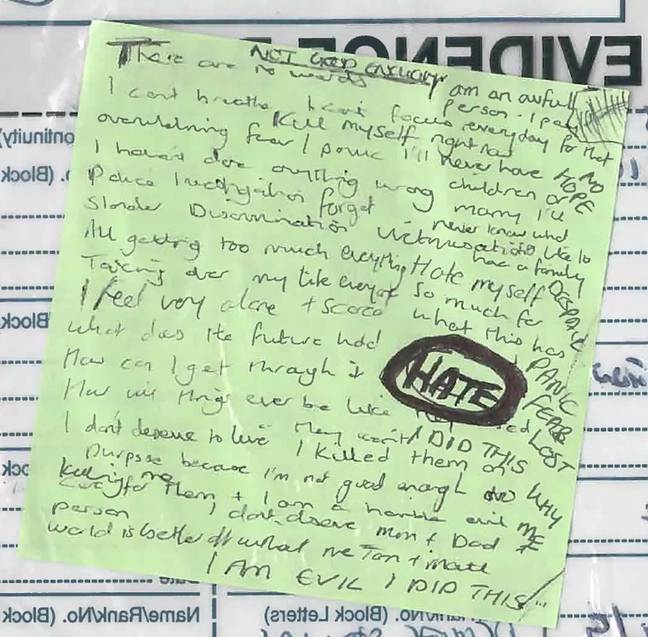 EVIDENCE
ontinuity)
o. (Block
NOT GOOD ENOUGH
There are no words
I am an awful person - I pay
everyday for that
I cant breathe I cant focus
overwhelming fear / panic
Kill myself right now
I'll never have NO
HOPE
I haven't done anything wrong
children or
marry I'll
never know what
Police Investigation forget
Slander Discrimination Victimisation its like to
have a family
All getting too much everything Hate myself
DESPAIR
Taking over my life everyday so much for
what this has
I feel very alone + scared
PANIC
What does the future hold
HATE
FEAR
How can I get through it
LOST
How will things ever be like
they won't
I DID THIS
I don't deserve to live I killed them on
purpose because I'm not good enough to WHY
ME
care for them + I am a horrible evil
Killing me
person I don't deserve mum + Dad
world is better off without me
I AM EVIL I DID THIS
Date
Name/Rank/No. (Block
Rank/No. (Block Letters)